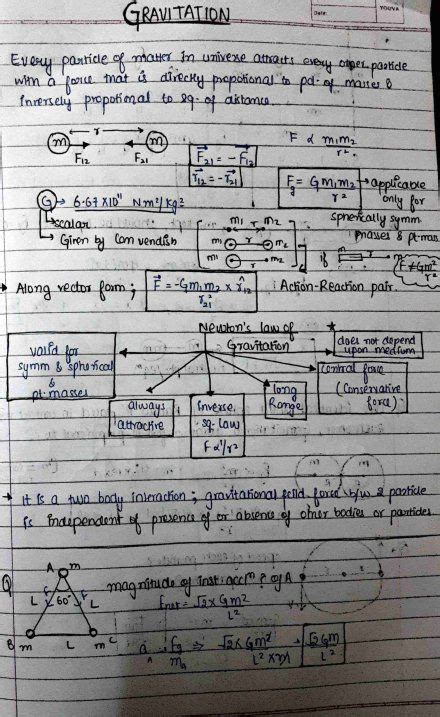 GRAVITATION
Date:
YOUVA
Every particle of matter in universe attracts every other particle
with a force that is directly propotional to pd. of masses &
inversely propotional to sq. of distance.
m r m
F12 F21
F21 = - F12
r12 = - r21
F ∝ m1m2 / r²
Fg = G m1m2 / r² → applicable
only for
spherically symm
masses & pt-mass
G → 6.67 X10¹¹ Nm²/Kg²
→ scalar
→ Given by Cavendish
m1 r m2
m1 r m2
m1 r m2
if m r m
F ≠ Gm²/r²
→ Along vector form; F = -Gm1m2 / r21² × r̂12 Action-Reaction pair.
Newton's law of
Gravitation
valid for
symm & spherical
&
pt-masses
always
attractive
inverse
sq. law
F ∝ 1/r²
long
Range
Central force
(Conservative
force)
does not depend
upon medium
→ It is a two body interaction; gravitational force b/w 2 particle
is independent of presence of or absence of other bodies or particles
Q A m
magnitude of inst. accⁿ ? of A
L F 60° F L
Fnet = √3 × Gm² / L²
B m L m C
aA = Fg / mA ⇒ √3 × Gm² / L² × m → √3 GM / L²